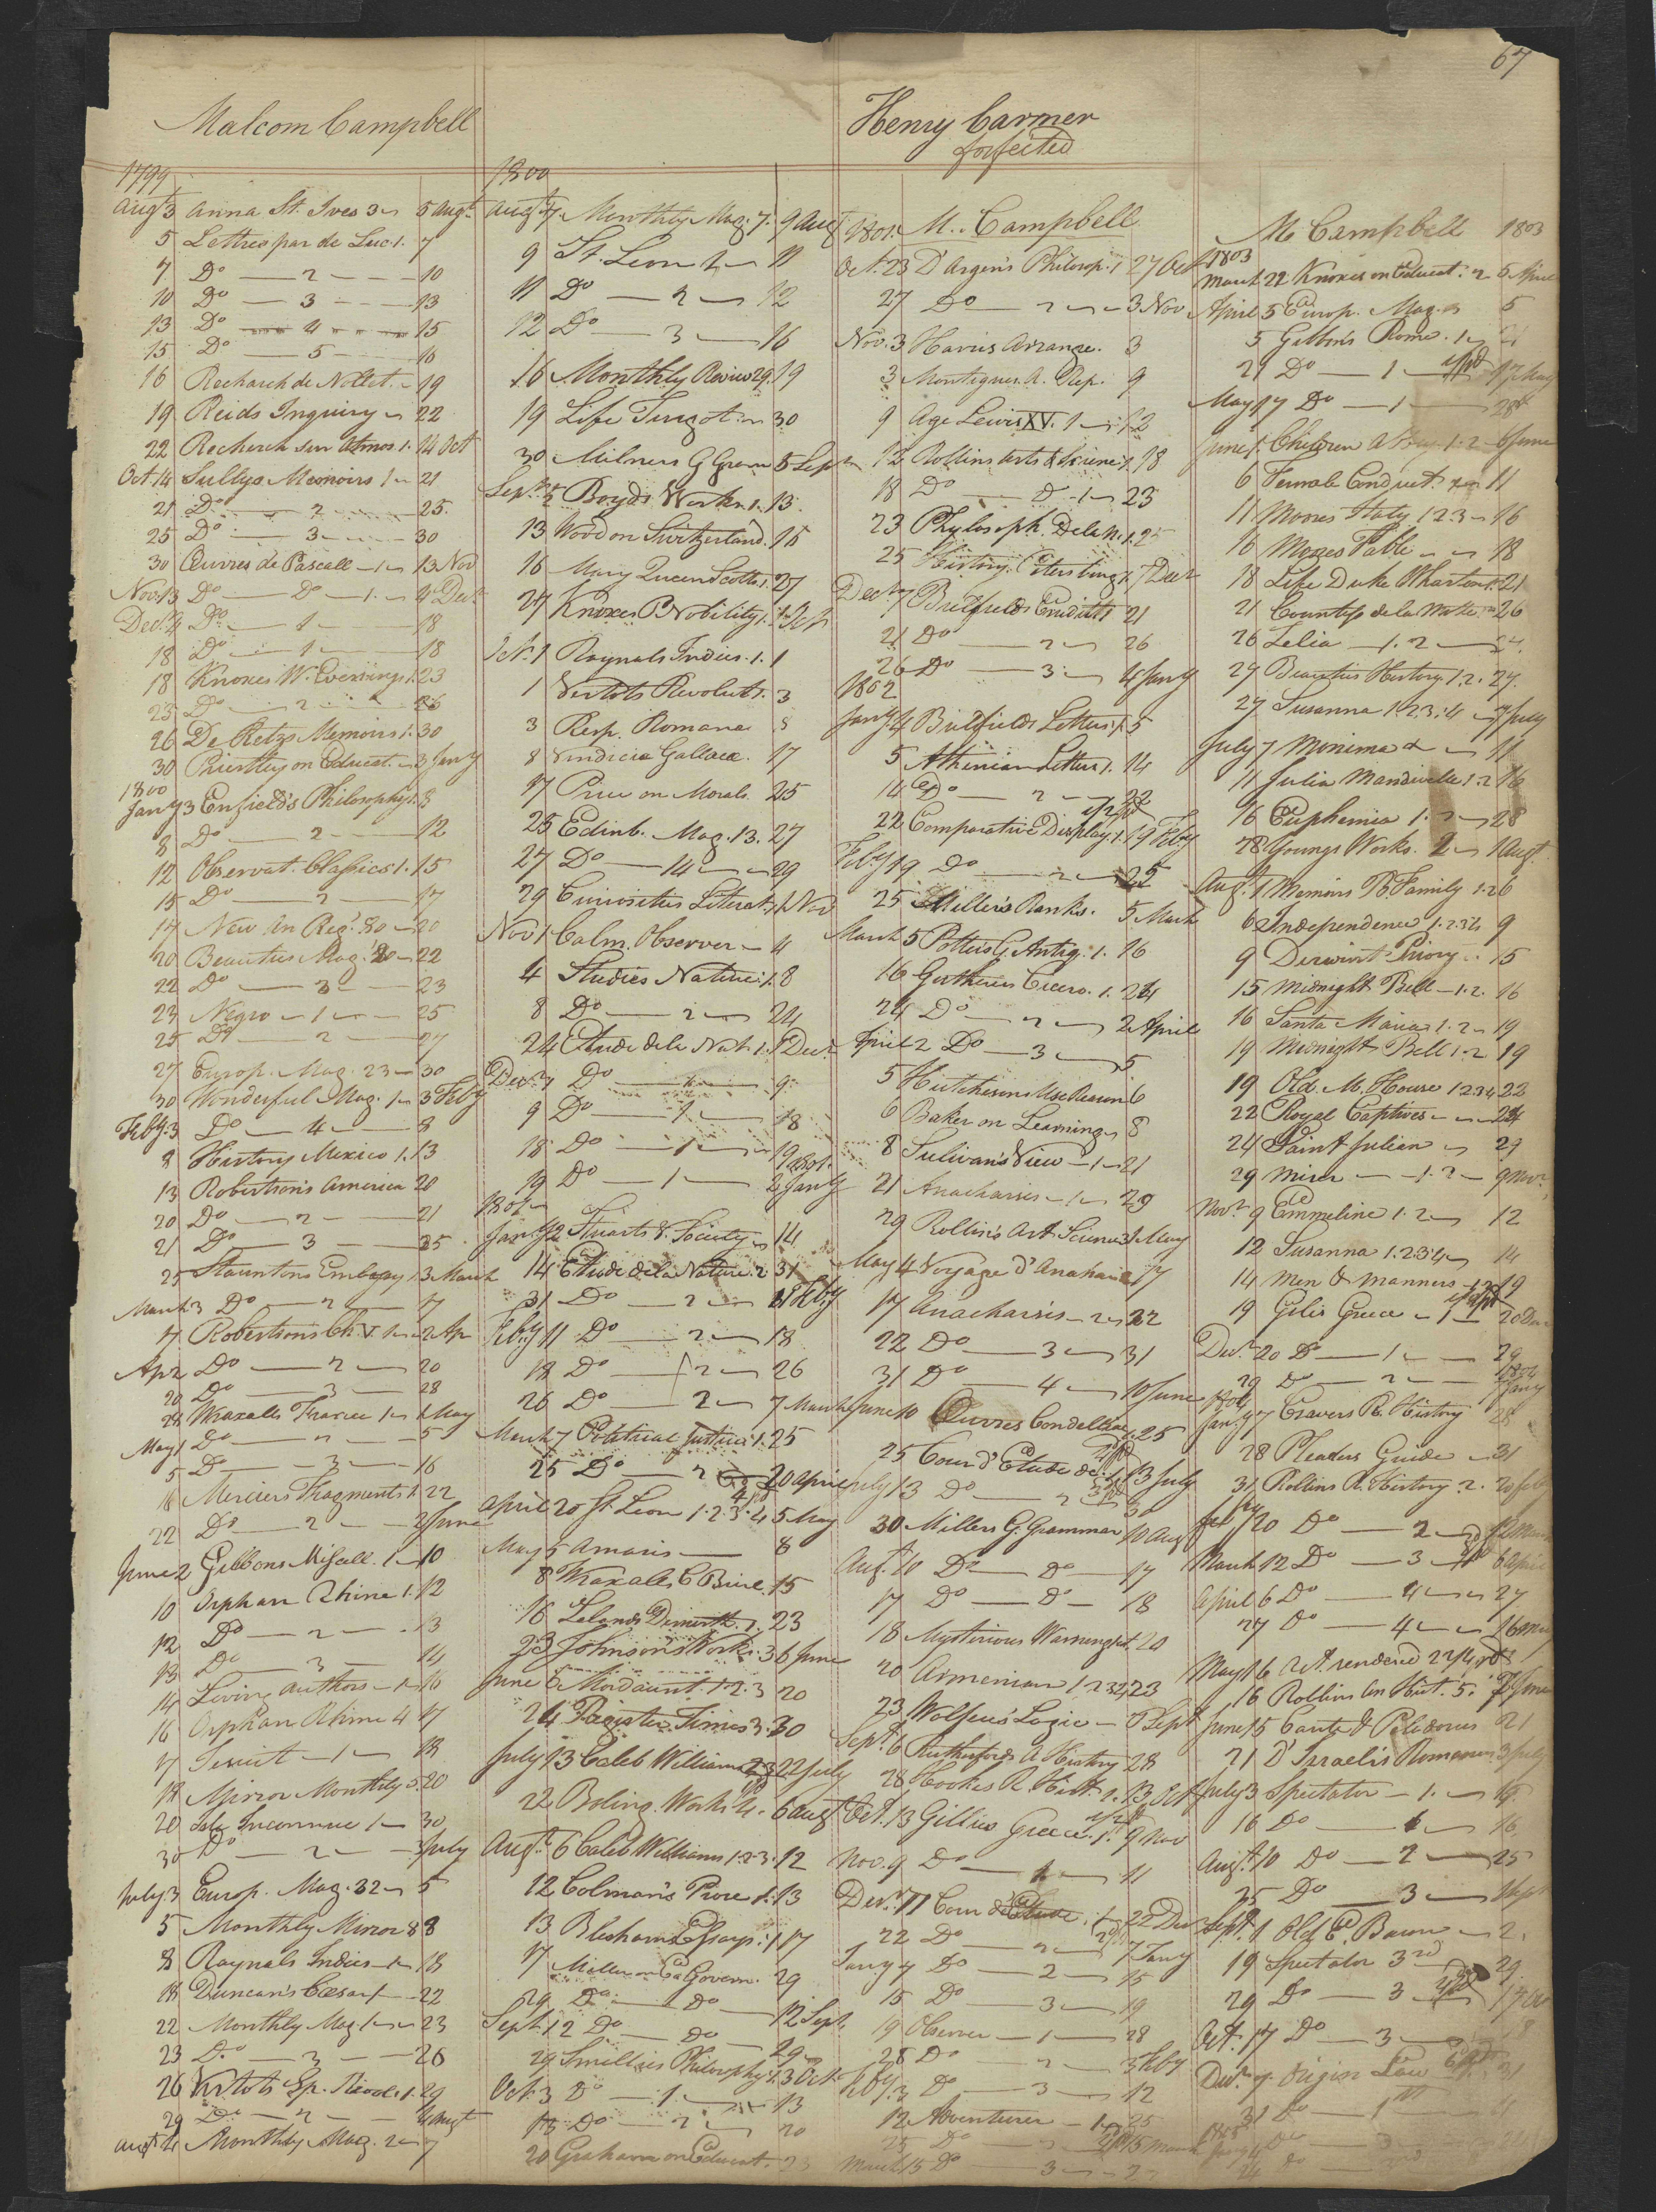 67
Malcom Campbell
1799
Augt 3 Anna St. Ives 3 5 Augt
5 Lettres par de Luc 1. 7
7 Do 2 10
10 Do 3 13
13 Do 4 15
15 Do 5 16
16 Recharch de Nollet. 19
19 Reids Inquiry 22
22 Recherch sur Atmos 1. 14 Oct
Oct. 14 Sullys Memoirs 1 21
21 Do 2 25.
25 Do 3 30
30 Œuvres de Pascall 1 13 Nov
Nov. 13 Do Do 1. 4 Decr
Decr 4 Do 1 18
18 Do 1 18
18 Knoxes W. Evenings 1. 23
23 Do 2 26
26 De Retzs Memoirs 1. 30
30 Priestley on Educat. 3 Jany
1800
Jany 3 Enfield's Philosophy 1. 8
8 Do 2 12
12 Observat. Classics 1. 15
15 Do 2 17
17 New An Reg. 80 20
20 Beauties Mag. 22
22 Do 23
23 Negro 1 25
25 Do 2 27
27 Europ. Mag. 23 30
30 Wonderful Mag. 1 3 Feby
Feby. 3 Do 4 8
8 History Mexico 1. 13
13 Robertson's America 20
20 Do 2 21
21 Do 3 25
25 Stauntons Embassy 1. 3 March
March 3 Do 2 7
7 Robertsons Ch. V. 1 2 Ap
Ap 2 Do 2 20
20 Do 3 28
28 Wraxalls France 1 1 May
May 1 Do 2 5
5 Do 3 16
16 Merciers Fragments 1. 22
22 Do 2 2 June
June 2 Gibbons Miscell. 1 10
10 Orphan Rhine 1. 12
12 Do 2 13
13 Do 3 14
14 Living Authors 1 16
16 Orphan Rhine 4 17
17 Jesuit 1 18
18 Mirror Monthly 3. 20
20 Isle Inconnue 1 30
30 Do 2 3 July
July 3 Europ. Mag. 32 5
5 Monthly Mirror 8 8
8 Raynals Indies 1 18
18 Duncan's Cæsar 1 22
22 Monthly Mag 1 23
23 Do 3 26
26 Vertots Sp. Revol. 1. 29
29 Do 2 4 Augt
Augt 4 Monthly Mag. 2 7
1800
Augt 7 Monthly Mag. 7. 9 Aug
9 St. Leon 2 11
11 Do 2 12
12 Do 3 16
16 Monthly Review 29. 19
19 Life Turgot 30
30 Milners G Gram 5 Septr
Septr 5 Boyds Works 1. 13.
13 Wood on Switzerland. 16
16 Mary Queen Scotts. 1. 27
27 Knoxes P. Nobility 1.
Oct. 1 Raynals Indies. 1. 1
1 Vertots Revolut 1. 3
3 Resp. Romana 8
8 Vindiciæ Gallacæ. 17
17 Price on Morals. 25
25 Edinb. Mag. 13. 27
27 Do 14 29
29 Curiosities Literat. 1 Nov
Nov 1 Calm Observer 4
4 Studies Nature 1. 8
8 Do 2 24
24 Etude de la Nat. 1. 7 Decr
Decr. 7 Do 9
9 Do 1 18
18 Do 1 19
19 Do 1 2 Jany 1801.
1801
Jany 2 Stuarts V. Society 14
14 Etude de la Nature. 2 31
31 Do 2 11 Feby
Feby 11 Do 2 18
18 Do 2 26
26 Do 2 7 March
March 7 Political Justice 1. 25
25 Do 2 20 April
April 20 St Leon 1. 2. 3. 4 5 May
May 5 Amaris 8
8 Wraxalls C Brice 15
16 Lelands Demosth. 1. 23
23 Johnsons Works. 3 6 June
June 6 Mordaunt. 1. 2. 3 20
24 Pagister Times 3. 30
July 13 Caleb Williams 2 3 22 July
22 Boling. Works 4. 6 Augt
Augt. 6 Caleb Williams 1. 2. 3. 12
12 Colman's Prose 1. 13
13 Blesham Essays. 1 17
17 Miller on E. Govern. 29
29 Do Do 12 Sept.
Sept 12 Do Do 29
29 Smellies Philosophy 1. 3 Octr
Oct. 3 Do 1 13
13 Do 2 20
20 Graham on Educat. 23
Henry Carmer
forfeited
1801. M. Campbell
Oct. 23 D'Argen's Philosop. 1 27 Oct
27 Do 2 3 Nov
Nov. 3 Harris Arrange. 3
3 Montigues A. Rep. 9
9 Age Lewis XV. 1 12
12 Rollins Arts & Scienc 1. 18
18 Do Do 1 23
23 Phylosoph. Dela N. 1. 25
25 History Petersburg 1. 7 Decr
Decr 7 Bielfields Erudit 1 21
21 Do 2 26
26 Do 3 4 Jany
1802
Jany 4 Bielfields Letters 1. 5
5 Athenian Letters 1. 14
14 Do 2 22
22 Comparative Display. 1. 19 Feby
Feby 19 Do 2 25
25 Miller's Ranks. 5 March
March 5 Potters G. Antiq. 1. 16
16 Guthries Cicero. 1. 24
24 Do 2 2 April
April 2 Do 3 5
5 Hutchesons Use Reason 6
6 Baker on Learning 8
8 Sulivan's View 1 21
21 Anacharsis 1 29
29 Rollin's Art Scienc 3 1 May
May 4 Voyage d'Anachars 17
17 Anacharsis 2 22
22 Do 3 31
31 Do 4 10 June
June 10 Œuvres Condillac 1. 25
25 Cour d'Etude de. 1. 13 July
July 13 Do 2 30
30 Millers G. Grammar 10 Aug
Aug. 10 Do Do 17
17 Do Do 18
18 Mysterious Warning 1. 20
20 Armenian 1 2 3 4 23
23 Wolfius Logic 6 Sept
Sept. 6 Rutherfords A History 28
28 Hookes R. Hist. 1. 13 Oct
Oct. 13 Gillies Greece. 1. 9 Nov
Nov. 9 Do 1 11
Decr. 11 Cour d'Etude. 1 22 Decr
22 Do 2 7 Jany
Jany 7 Do 2 15
15 Do 3 19
19 Observer 1 28
28 Do 2 3 Feby
Feby. 3 Do 3 12
12 Adventurer 1 25
25 Do 2 15 March
March 15 Do 3
M Campbell 1803
1803
March 22 Knoxes on Educat. 2 5 April
April 5 Europ. Mag. 5
5 Gibbon's Rome. 1 21
21 Do 1 17 May
May 17 Do 1 28
June 1. Children Abbey 1. 2 6 June
6 Female Conduct 11
11 Moores Italy 1 2 3 16
16 Moores Fable 18
18 Life Duke Wharton 1. 21
21 Countess de la Motte 26
26 Zelia 1. 2
27 Beauties History 1. 2. 27.
27 Susanna 1. 2. 3. 4 7 July
July 7 Monima 11
11 Julia Mandiville 1. 2 16
16 Euphemia 1. 2 28
28 Youngs Works. 2 1 Augt
Aug. 1 Memoirs B. Family 1. 2 6
6 Independence 1. 2. 3. 4 9
9 Derwint Priory 15
15 Midnight Bell 1. 2. 16
16 Santa Maria 1. 2 19
19 Midnight Bell 1. 2 19
19 Old M. House 1 2 3 4 22
22 Royal Captives 24
24 Saint Julian 29
29 Miser 1. 2 9 Nov.
Novr 9 Emmeline 1. 2 12
12 Susanna 1. 2 3 4 14
14 Men & Manners 1. 2 19
19 Gilis Greece 1 20 Dec
Decr. 20 Do 1 29
29 Do 2 7 Jany 1804
1804
Jany 7 Cravers R. History 28
28 Pleaders Guide 31
31 Rollins R. History. 2. 20 Feby
Feby 20 Do 2 12 March
March 12 Do 3 6 April
April 6 Do 4 27
27 Do 4 16 May
May 16 Act. rendered 22/4
16 Rollins An Hist. 5. 5 June
June 15 Cants & Pelidorus 21
21 D'Israelis Romances 3 July
July 3 Spectator 1. 16
16 Do 1 16
Augt. 10 Do 2 25
25 Do 3 1 Sept
Sept. 1 Old E. Baron 2.
19 Spectator 3rd 29
29 Do 3
Oct. 17 Do 3
Decr. 7 Origin Law 31
31 Do 1